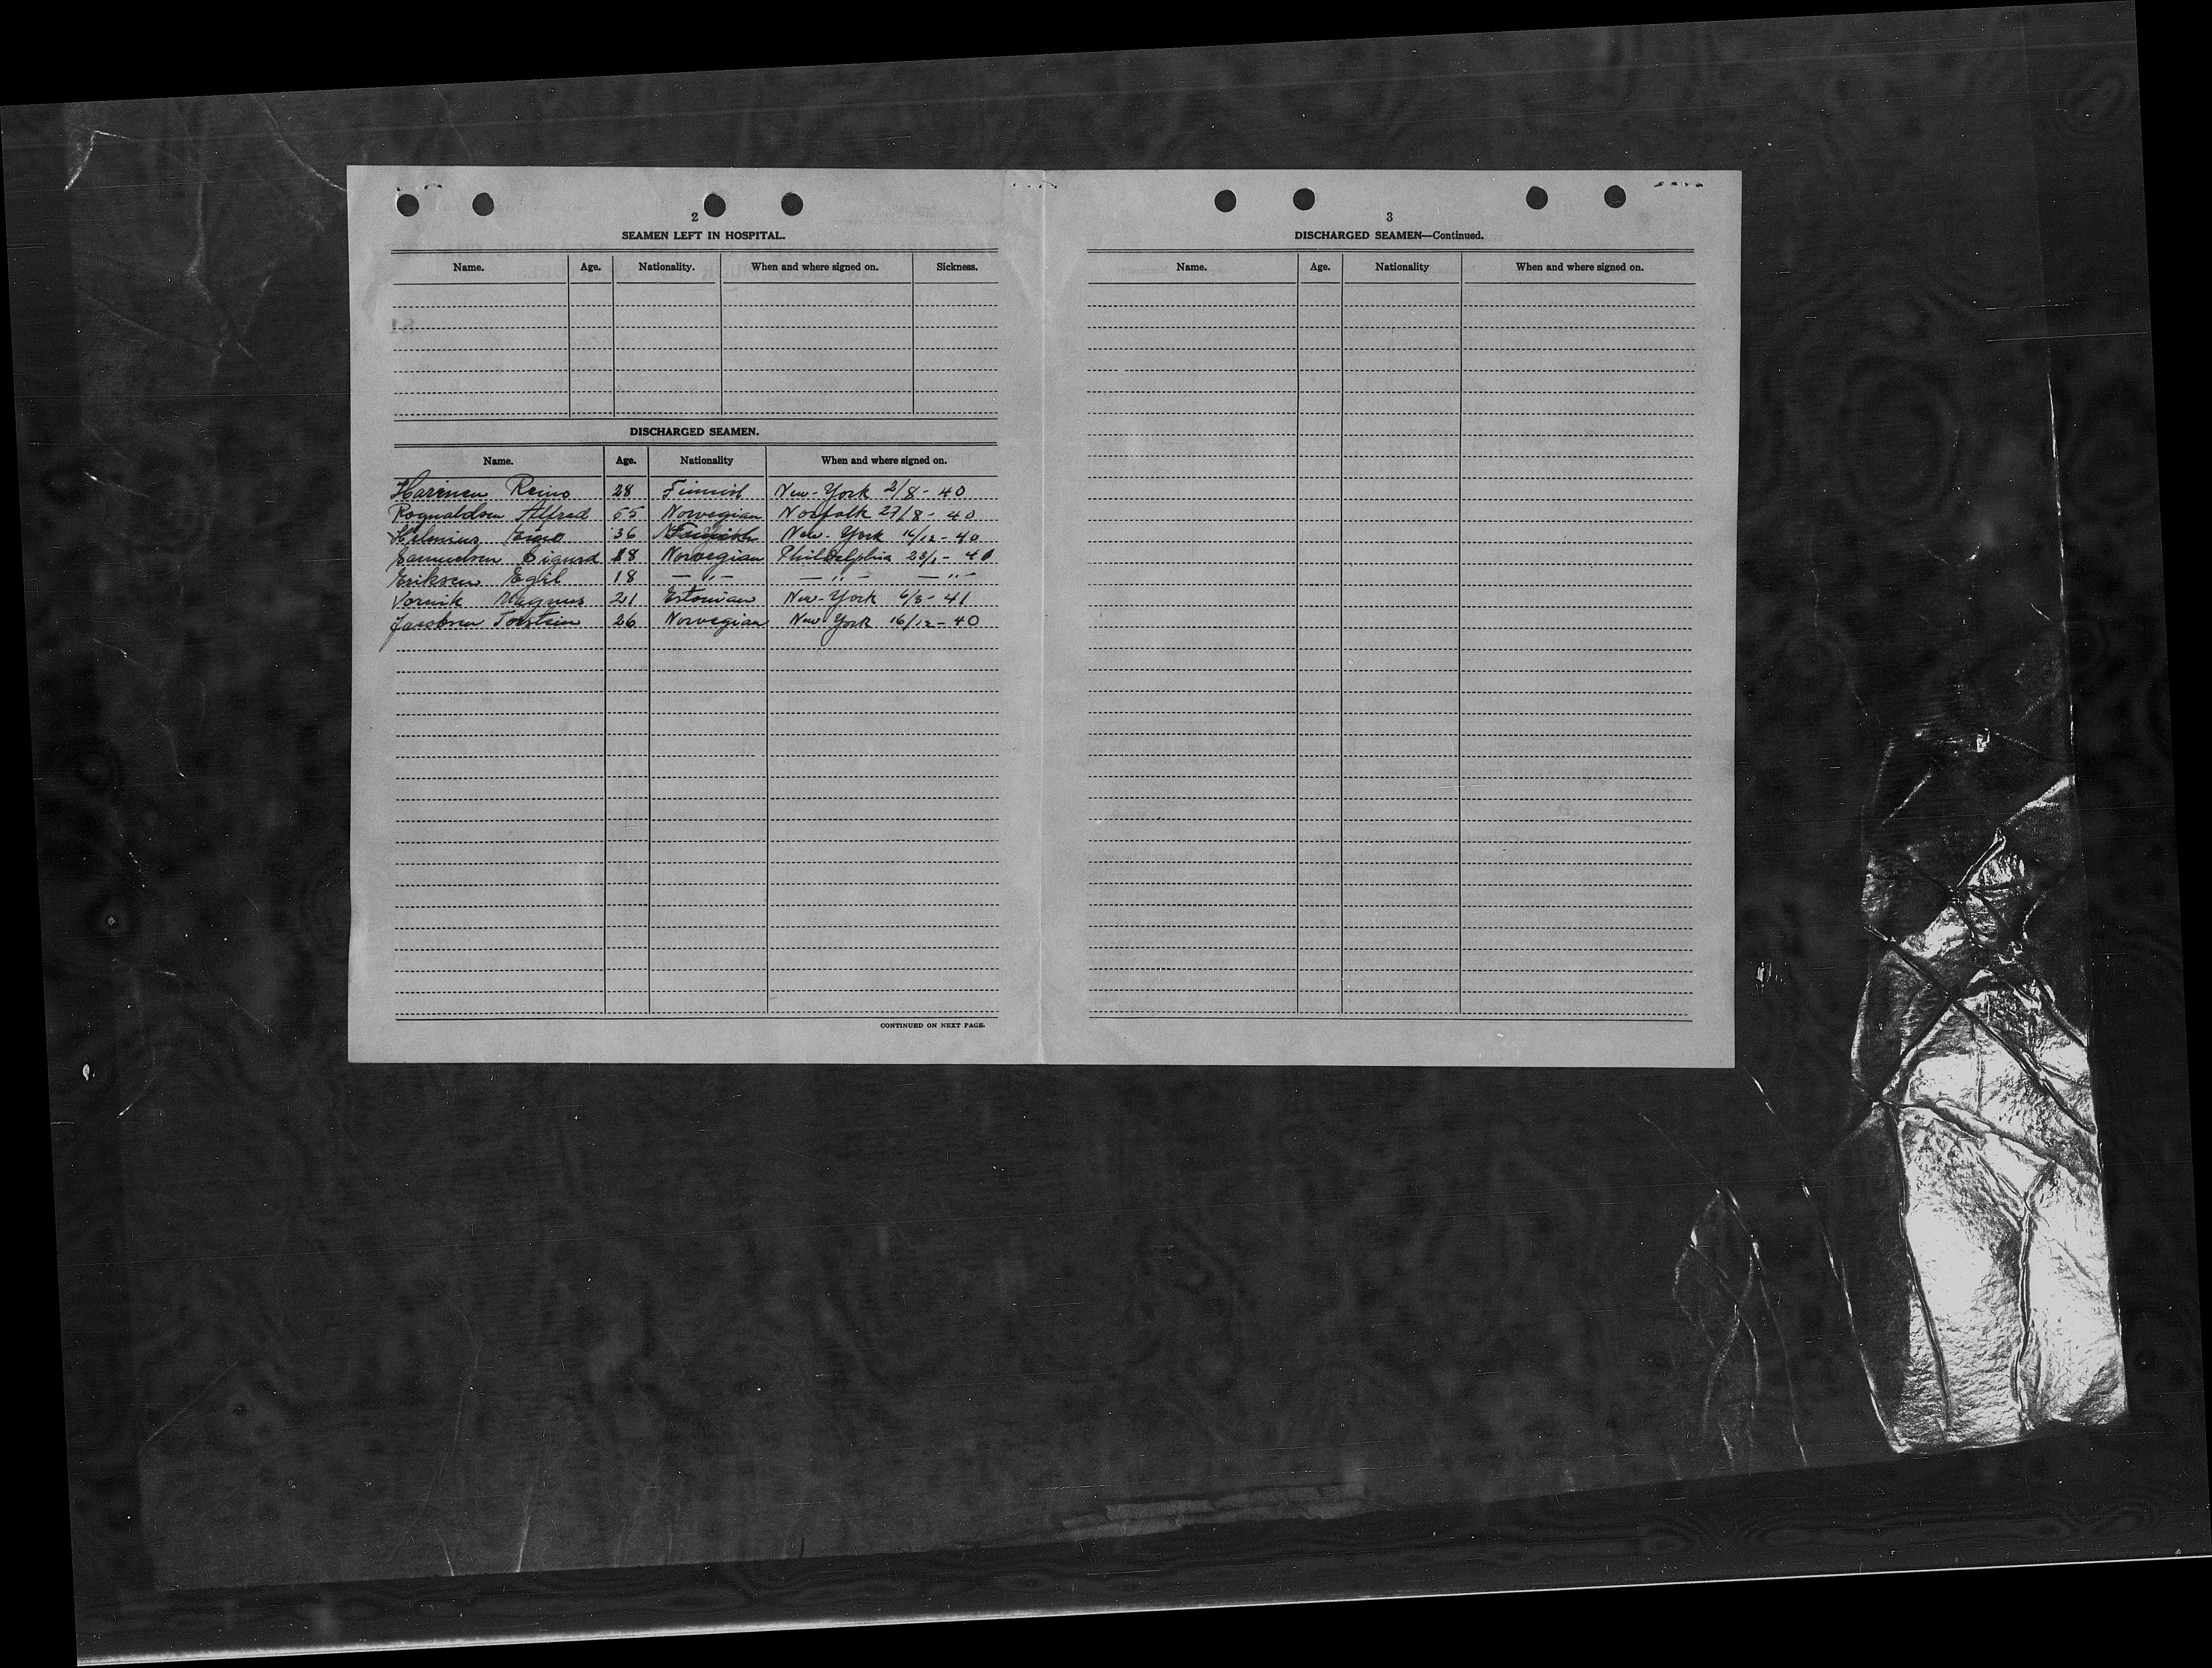 2
SEAMEN LEFT IN HOSPITAL.
Name. Age. Nationality. When and where signed on. Sickness.
DISCHARGED SEAMEN.
Name. Age. Nationality When and where signed on.
Harinen Reino 28 Finnish New-York 2/8-40
Rognaldsen Alfred 55 Norwegian Norfolk 27/8-40
Helenius 36 New-York 16/12-40
Samuelsen Sigurd 18 Norwegian Philadelphia 23/1-
Eriksen Egil 18 —"— —"— —"—
Vornik Magnus 21 Estonian New-York 6/3-41
Jacobsen Torstein 26 Norwegian New York 16/12-40
CONTINUED ON NEXT PAGE.
3
DISCHARGED SEAMEN—Continued.
Name. Age. Nationality When and where signed on.